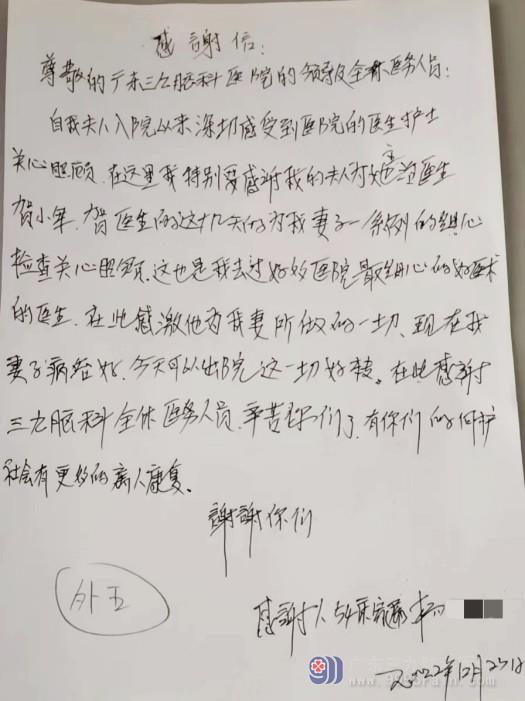 感謝信：
尊敬的广东三九脑科医院的领导及全体医务人员：
自我夫人入院以来深切感受到医院的医生护士
关心照顾．在这里我特别要感谢我的夫人的主治医生
贺小军．贺医生的这几天的为我妻子一系列的细心
检查关心照顾．这也是我去过好多医院最细心的好医术
的医生．在此感激他为我妻所做的一切、现在我
妻子病经好．今天可以出院这一切好转。在此感謝
三九脑科全休医务人员．辛苦你们了．有你们的
社会有更好的病人康复。
謝謝你们
外五
感謝人 54床家属
2022年12月23日
广东三九脑科医院
999brain.com